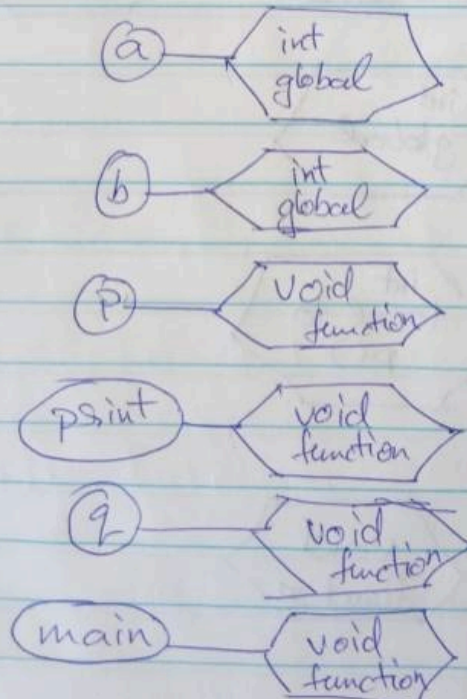 a int
global
b int
global
p void
function
print void
function
q void
function
main void
function